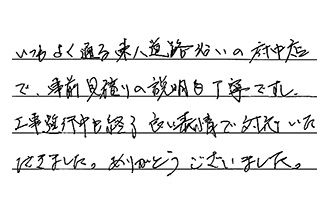 いつもよく通る東八道路沿いの府中店
で、事前見積りの説明も丁寧ですし、
工事進行中も終了後も良い表情で対応いた
だきました。ありがとうございました。